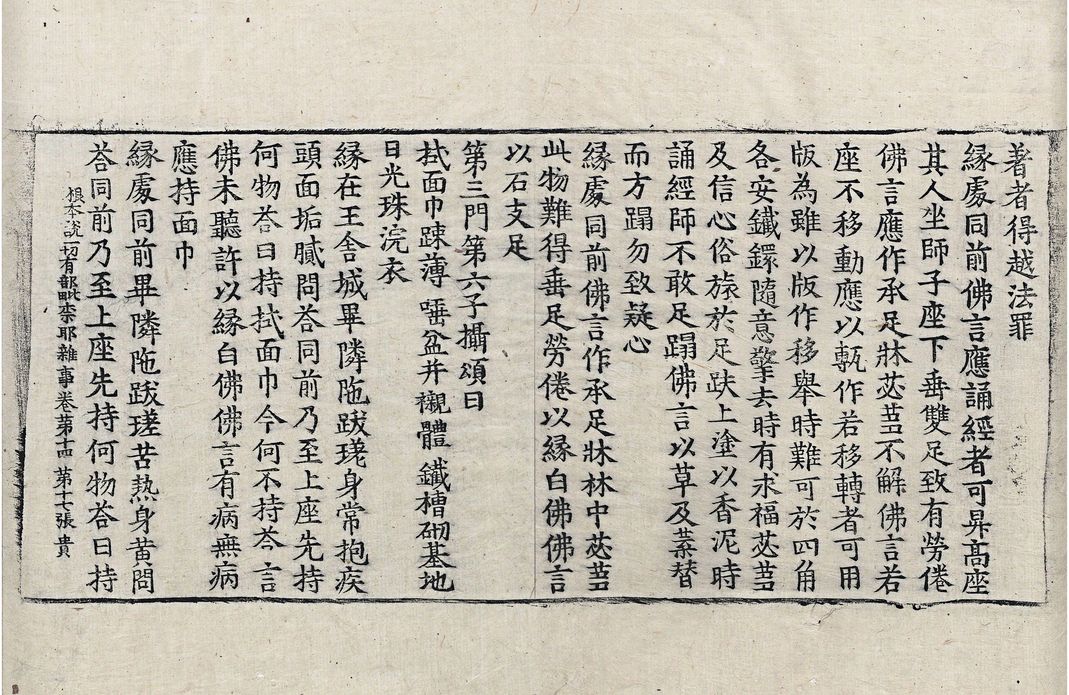 著者得越法罪
縁處同前佛言應誦經者可昇髙座
其人坐師子座下垂雙足致有勞倦
佛言應作承足牀苾芻不解佛言若
座不移動應以甎作若移轉者可用
版為雖以版作移舉時難可於四角
各安鐵鐶隨意擎去時有求福苾芻
及信心俗旅於足趺上塗以香泥時
誦經師不敢足蹋佛言以草及葉替
而方蹋勿致疑心
縁處同前佛言作承足牀林中苾芻
此物難得垂足勞倦以縁白佛佛言
以石支足
第三門第六子攝頌曰
拭面巾踈薄唾盆并襯體鐵槽砌基地
日光珠浣衣
縁在王舍城畢隣陁跋瑳身常抱疾
頭面垢膩問荅同前乃至上座先持
何物荅曰持拭面巾今何不持荅言
佛未聽許以縁白佛佛言有病無病
應持面巾
縁處同前畢隣陁跋瑳苦熱身黄問
根本說一切有部毗柰耶雜事卷苐十四 第十七張 貴
荅同前乃至上座先持何物荅曰持